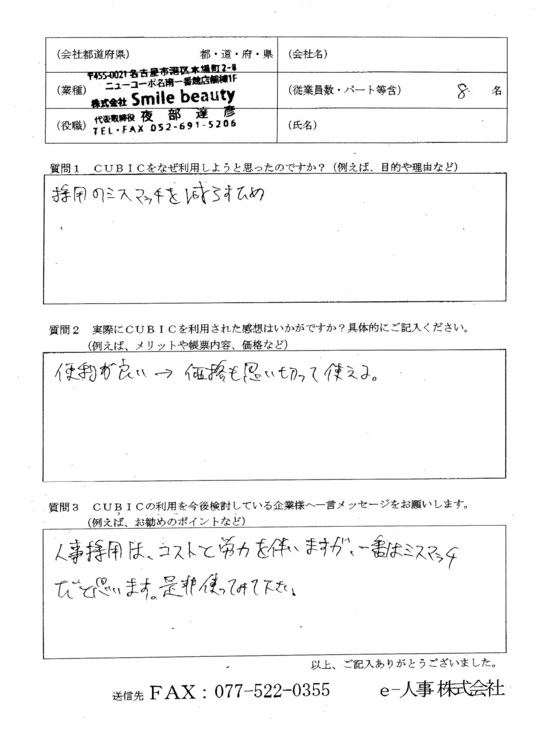 (会社都道府県) 都・道・府・県 (会社名)
〒455-0021 名古屋市港区木場町2-8
ニューコーポ名南一番館店舗棟1F
(業種) 株式会社 Smile beauty (従業員数・パート等含) 8 名
代表取締役 夜部 達彦
(役職) TEL・FAX 052-691-5206 (氏名)
質問1 CUBICをなぜ利用しようと思ったのですか?(例えば、目的や理由など)
採用のミスマッチを減らすため
質問2 実際にCUBICを利用された感想はいかがですか?具体的にご記入ください。
(例えば、メリットや帳票内容、価格など)
便利が良い → 価格も思い切って使える。
質問3 CUBICの利用を今後検討している企業様へ一言メッセージをお願いします。
(例えば、お勧めのポイントなど)
人事採用は、コストと労力を伴いますが、一番はミスマッチ
だと思います。是非使ってみて下さい。
以上、ご記入ありがとうございました。
送信先 FAX:077-522-0355 e-人事株式会社